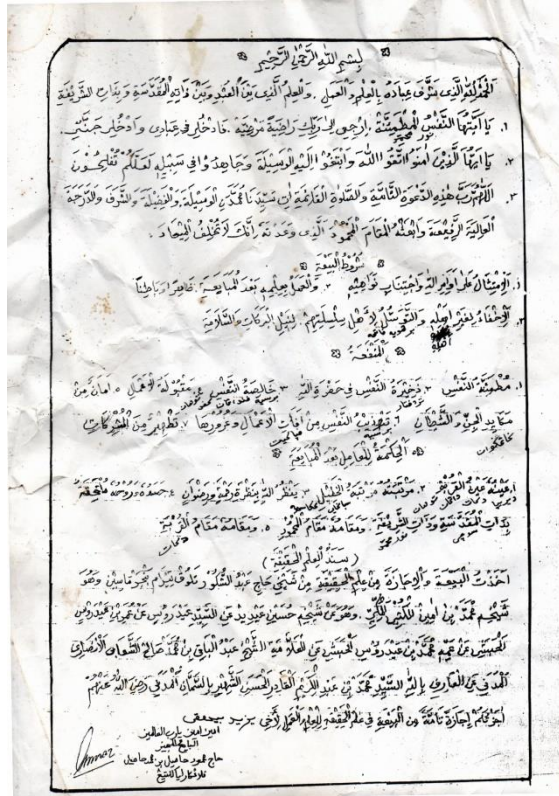 بِسْمِ اللهِ الرَّحْمٰنِ الرَّحِيْمِ
اَلْحَمْدُ لِلّٰهِ الَّذِى شَرَّفَ عِبَادَهُ بِالْعِلْمِ وَالْعَمَلِ . وَالْعِلْمُ الَّذِى بَيْنَ الْعَبْدِ وَبَيْنَ ذَاتِهِ الْمُقَدَّسَةِ وَبِذَاتِ الشَّرِيْفَةِ
١. يَا اَيَّتُهَا النَّفْسُ الْمُطْمَئِنَّةُ . اِرْجِعِى اِلَى رَبِّكِ رَاضِيَةً مَرْضِيَّةً . فَادْخُلِى فِى عِبَادِى وَادْخُلِى جَنَّتِى .
٢. يَا اَيُّهَا الَّذِيْنَ اٰمَنُوا اتَّقُوا اللهَ وَابْتَغُوْا اِلَيْهِ الْوَسِيْلَةَ وَجَاهِدُوْا فِى سَبِيْلِهِ لَعَلَّكُمْ تُفْلِحُوْنَ
٣. اَللّٰهُمَّ رَبَّ هٰذِهِ الدَّعْوَةِ التَّامَّةِ وَالصَّلَاةِ الْقَائِمَةِ اٰتِ سَيِّدَنَا مُحَمَّدَنِ الْوَسِيْلَةَ وَالْفَضِيْلَةَ وَالشَّرَفَ وَالدَّرَجَةَ
الْعَالِيَةَ الرَّفِيْعَةَ وَابْعَثْهُ الْمَقَامَ الْمَحْمُوْدَ الَّذِى وَعَدْتَهُ اِنَّكَ لَا تُخْلِفُ الْمِيْعَادَ .
شُرُوْطُ الْبَيْعَةِ
١. اَلْاِمْتِثَالُ عَلَى اَوَامِرِ اللهِ وَاجْتِنَابِ نَوَاهِيْهِ ٢. وَالْعَمَلُ بِعِلْمِهِ بَعْدَ الْمُبَايَعَةِ . ظَاهِرًا وَبَاطِنًا
٣. اَلْاِخْفَاءُ بِغَيْرِ اَهْلِهِ وَالتَّوَسُّلُ لِاَهْلِ سِلْسِلَتِهِمْ . لِنَيْلِ الْبَرَكَاتِ وَالسَّلَامَةِ
اَلْمَنْفَعَةُ
١. مُطْمَئِنَّةُ النَّفْسِ ٢. ذَخِيْرَةُ النَّفْسِ فِى حَضْرَةِ اللهِ ٣. خَالِصَةُ النَّفْسِ ٤. مَقْبُوْلَةُ الْاَعْمَالِ ٥. اَمَانٌ مِنْ
مَكَايِدِ الْجِنِّ وَالشَّيْطَانِ ٦. تَهْذِيْبُ النَّفْسِ مِنْ اٰفَاتِ الْاَعْمَالِ وَغُرُوْرِهَا ٧. تَطْهِيْرٌ مِنَ
اَلْعَامِلِ بَعْدَ الْمُبَايَعَةِ
٢. مَرْتَبَتُهُ مَرْتَبَةُ الْخَلِيْلِ ٣. يَنْظُرُ اللهُ بِنَظْرَةِ رَحْمَةٍ وَرِضْوَانٍ ٤. جَسَدُهُ وَرُوْحُهُ
بِذَاتِ الْمُقَدَّسَةِ وَذَاتِ الشَّرِيْفَةِ . وَمَقَامُهُ مَقَامُ الْمَحْمُوْدِ ٥. وَمَقَامُهُ مَقَامُ الْقُرْبَةِ
( سَنَدُ الْعِلْمِ الْحَقِيْقَةِ )
اَخَذْتُ الْبَيْعَةَ وَالْاِجَازَةَ مِنْ عِلْمِ الْحَقِيْقَةِ مِنْ شَيْخِى حَاجِ عَبْدِ الشُّكُوْرِ وَهُوَ
شَيْخِهِ مُحَمَّدْ بْنِ اَمِيْنِ الْكُتْبِى الْمَكِّى . وَهُوَ عَنْ شَيْخِهِ حُسَيْن عَيْدِيْد عَنِ السَّيِّدِ عَيْدَرُوْسِ عَنْ عُمَرَ بْنِ عَيْدَرُوْسِ
الْحَبْشِى عَنْ عَمِّهِ مُحَمَّدْ بْنِ عَيْدَرُوْسِ الْحَبْشِى عَنِ الْعَلَّامَةِ الشَّيْخِ عَبْدِ الْبَاقِى بْنِ مُحَمَّدْ صَالِحِ الشَّعَّابِ الْاَنْصَارِى
الْمَدَنِى عَنِ الْعَارِفِ بِاللهِ السَّيِّدِ مُحَمَّدْ بْنِ عَبْدِ الْكَرِيْمِ الْقَادِرِى الْحَسَنِى الشَّهِيْرِ بِالسَّمَّانِ الْمَدَنِى رَضِيَ اللهُ عَنْهُمْ
اَجَزْتُكُمْ اِجَازَةً تَامَّةً فِى عِلْمِ الْحَقِيْقَةِ لِلْعِلْمِ وَالْعَمَلِ لِاَخِى
امين امين يارب العالمين
حاج محمود